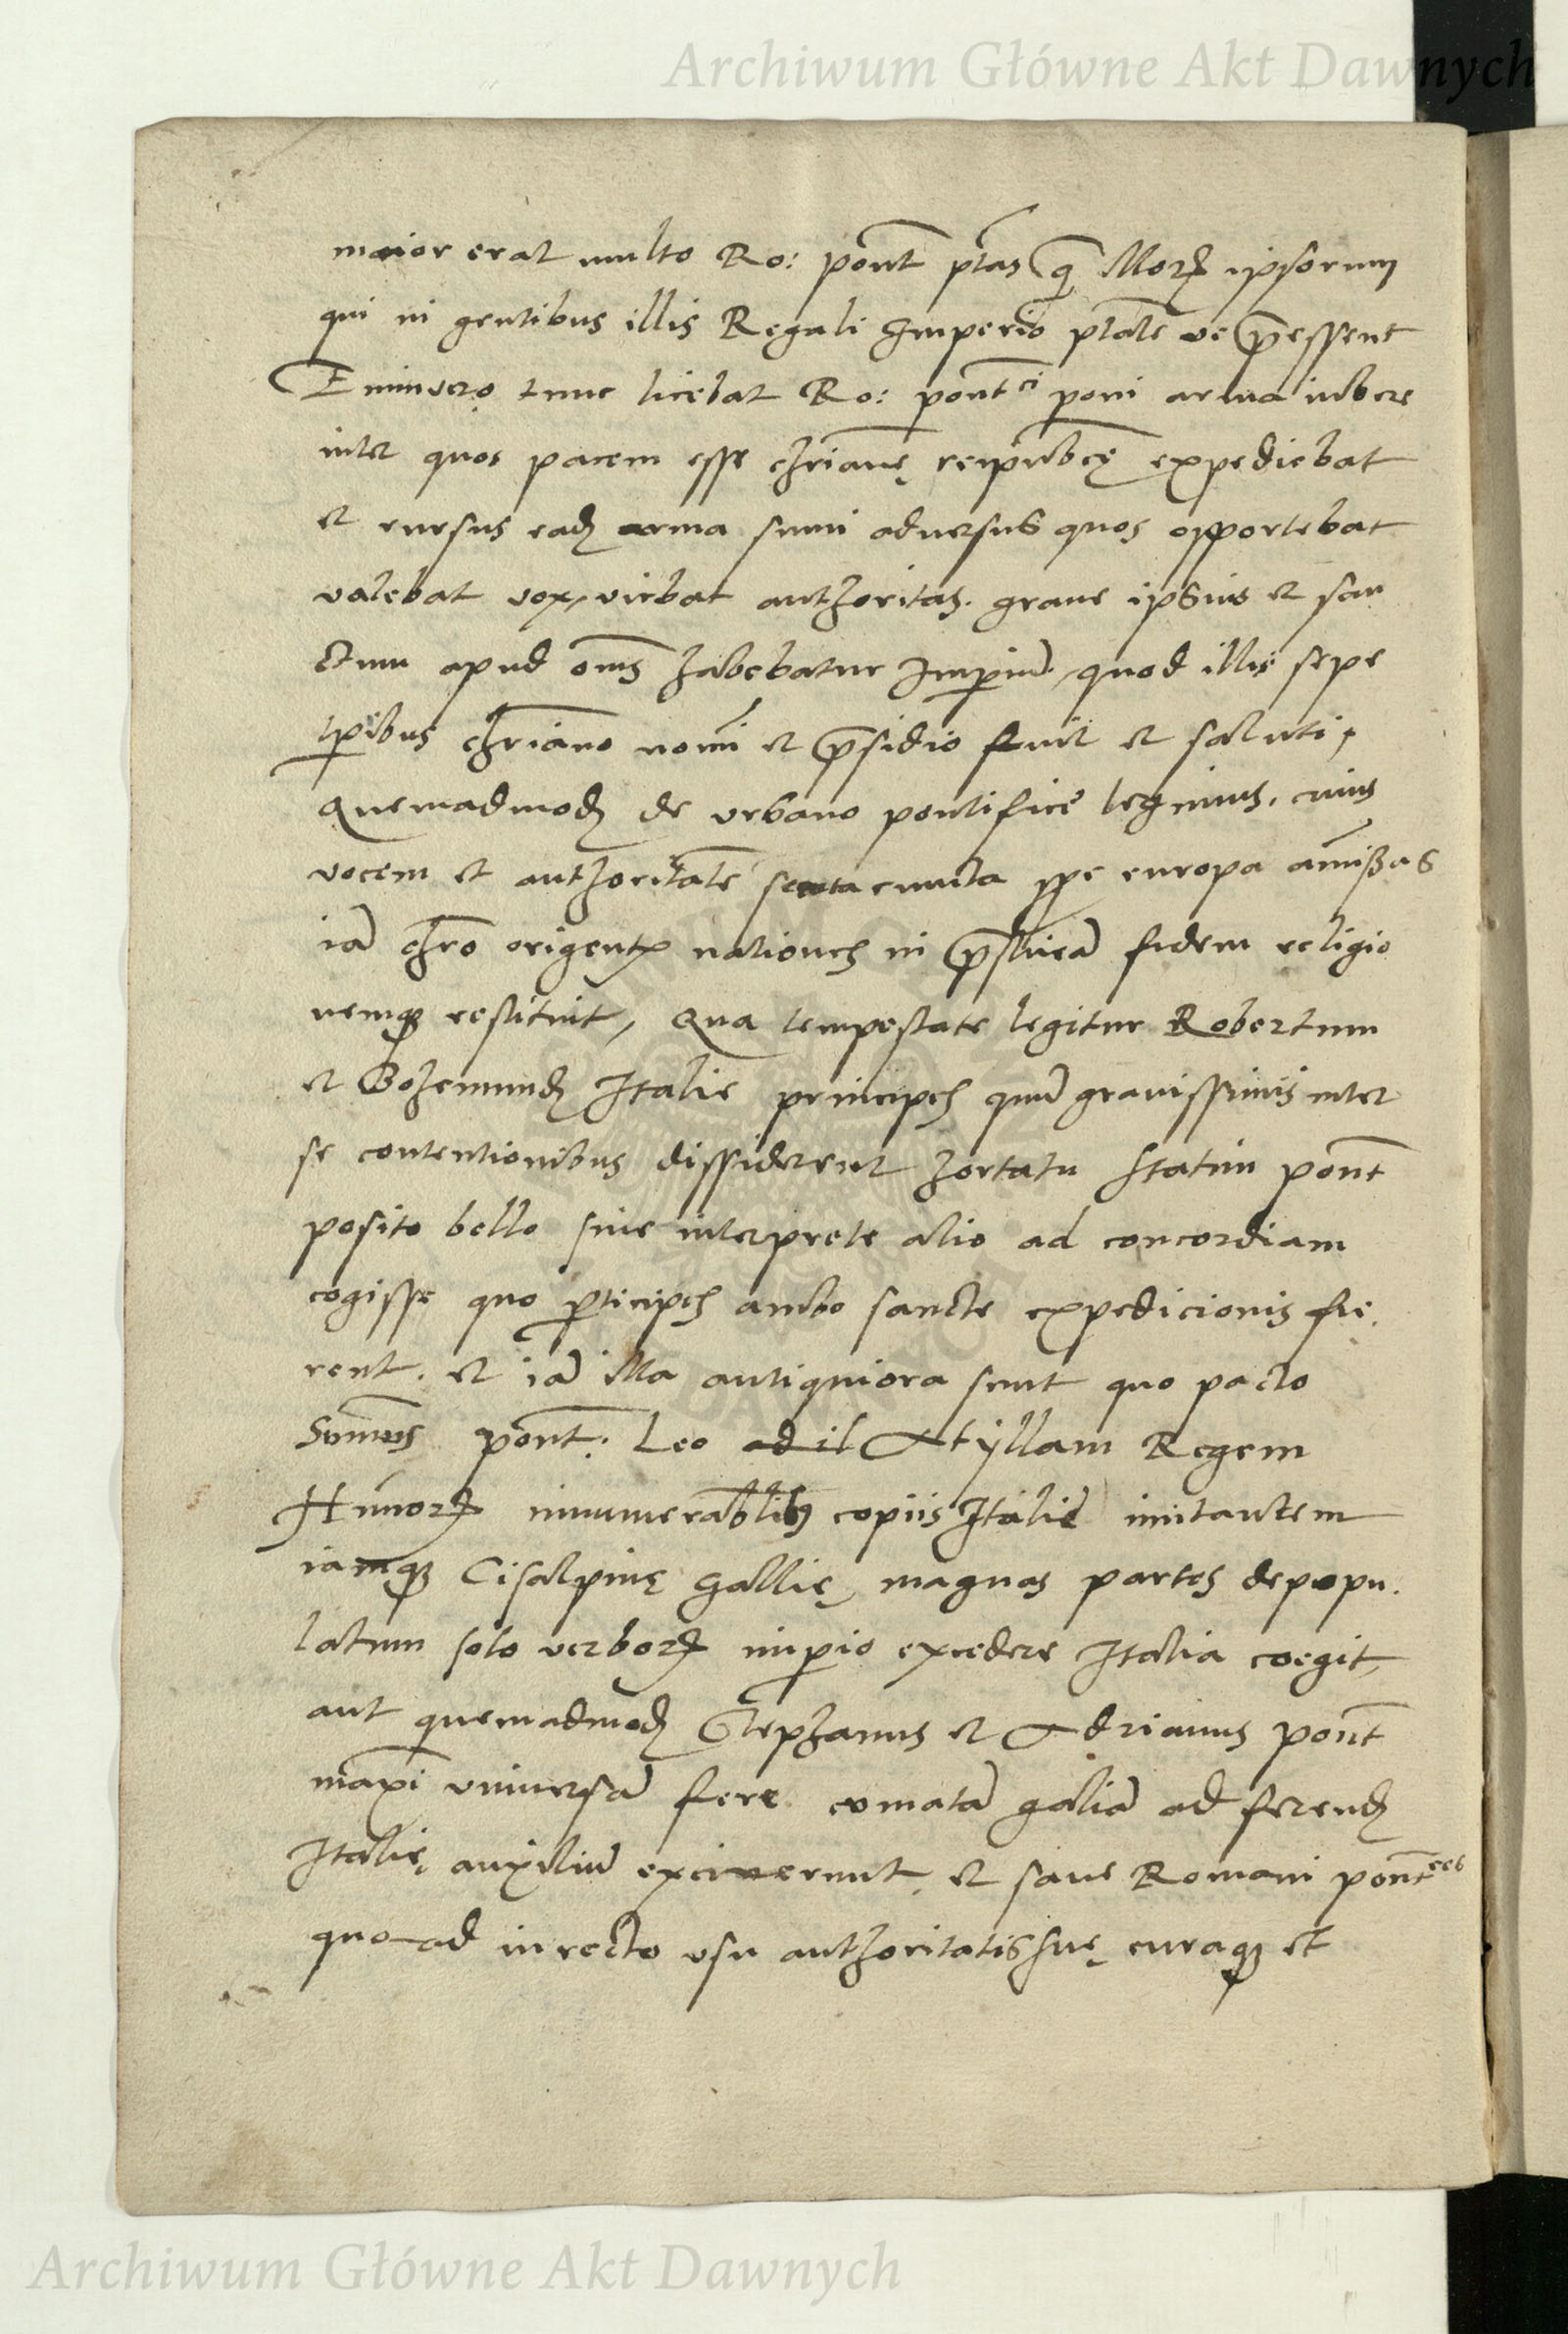 Archiwum Główne Akt Dawnych
maior erat multo Ro: pont ptas q̃ Illoꝝ ipsorum
qui in gentibus illis Regali Imperio ptate ve p̃essent
Enimvero tunc licebat Ro: pontci poni arma iubere
inter quos pacem esse chrianę reipubcę expediebat
et rursus eadꝫ arma sumi adversus quos opportebat
valebat vox, viebat authoritas. grave ipsius et san
ctum apud oms habebatur Imperiũ, quod illis sepe
tpibus chriano nomi et p̃sidio fuit et saluti,
Quemadmodꝫ de urbano pontifice legimus, cuius
vocem et authoritatẽ cuncta ppe europa amissas
iã chro origentꝭ nationes in p̃stinã fidem religio
nemqꝫ restituit, Qua tempestate legitur Robertum
et Bohemundꝫ Italie principes quũ gravissimis inter
se contentionibus dissiderent hortatu statim pont
posito bello sine interprete alio ad concordiam
cogisse quo pticipes ambo sancte expedicionis fie.
rent. et iã illa antiquiora sunt quo pacto
Summus pont: Leo Attyllam Regem
Hunnoꝝ innumerabilibꝫ copiis Italiẽ imitantem
iamqꝫ Cisalpinę Gallię magnas partes depopu.
latum solo verboꝝ imperio excedere Italia coegit,
aut quemadmodꝫ Stephanus et Adrianus pont
maxi universã fere comatã galiã ad ferendꝫ
Italię auxiliũ exciverunt, et sane Romani pontces
quo ad in recto usu authoritatis suę curaqꝫ et
Archiwum Główne Akt Dawnych